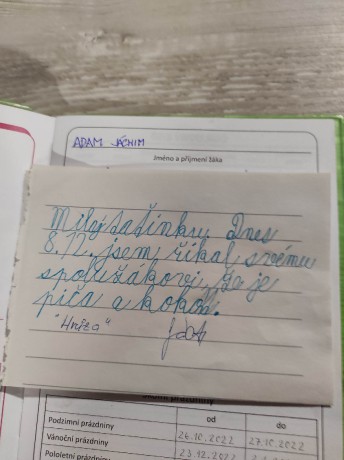 ADAM JÁCHIM
Jméno a příjmení žáka
Milý tatínku, Dnes
8.12. jsem říkal svému
spolužákovi, že je
piča a kokot.
"Hnízo"
prázdniny
od
do
Podzimní prázdniny
26.10.2022
27.10.2022
Vánoční prázdniny
23.12.2022
Pololetní prázdniny